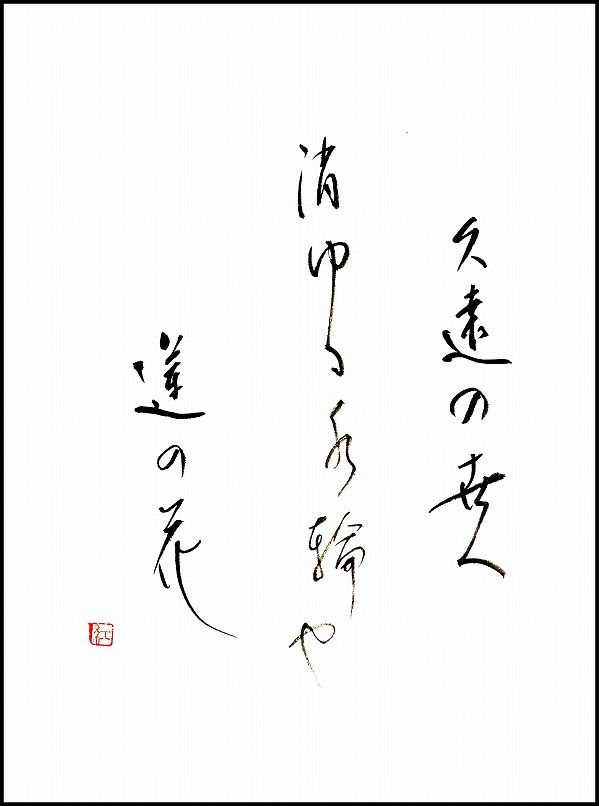 久遠の世へ
消ゆる水輪や
蓮の花